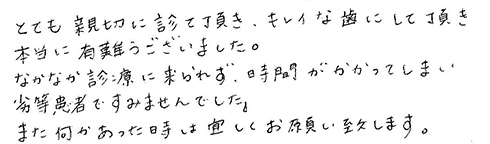 とても親切に診て頂き、キレイな歯にして頂き
本当に有難うございました。
なかなか診療に来られず、時間がかかってしまい
劣等患者ですみませんでした。
また何かあった時は宜しくお願い致します。